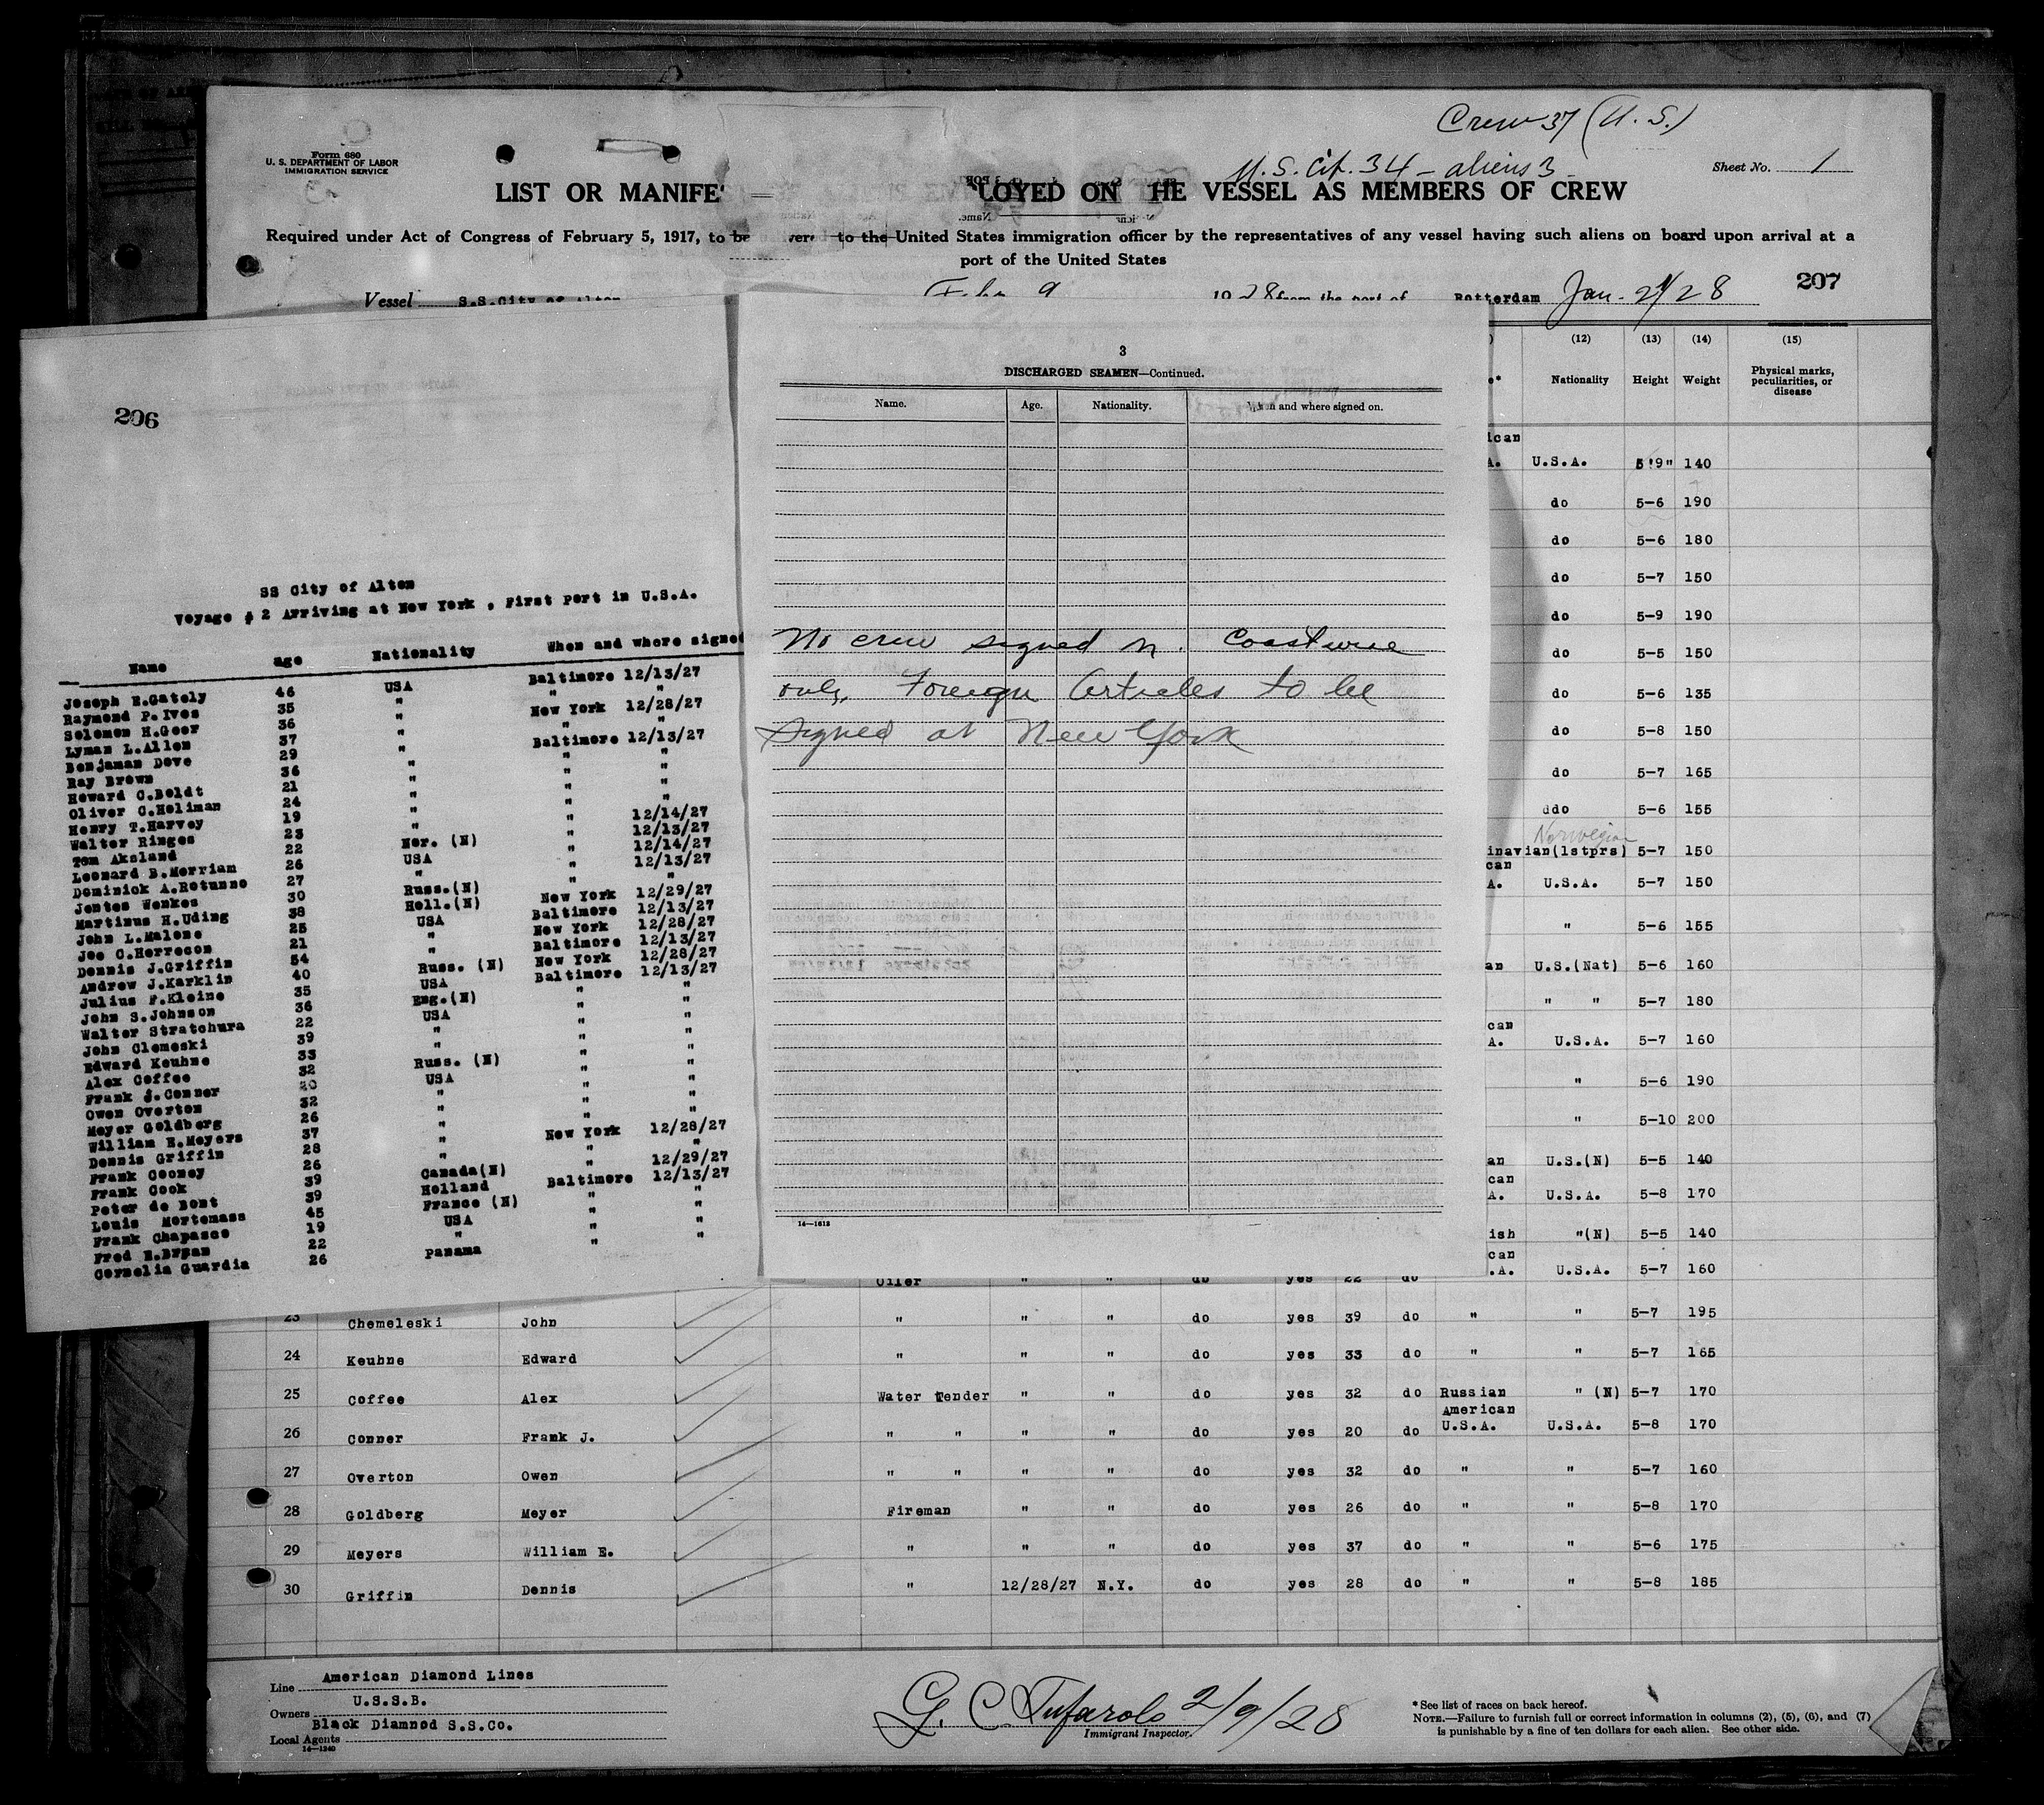 Crew 37 (U.S.)
U.S. Cit. 34 - aliens 3
Sheet No. 1
Form 680
U. S. DEPARTMENT OF LABOR
IMMIGRATION SERVICE
LIST OR MANIFE LOYED ON HE VESSEL AS MEMBERS OF CREW
Required under Act of Congress of February 5, 1917, to be vere to the United States immigration officer by the representatives of any vessel having such aliens on board upon arrival at a
port of the United States
Vessel S.S.City of Alton Feb. 9 1928 from the port of Rotterdam Jan. 21/28 207
206
SS City of Alton
Voyage # 2 Arriving at New York , First Port in U.S.A.
Name age Nationality When and where signed
Joseph E.Gately 46 USA Baltimore 12/13/27
Raymond P.Ives 35 " " "
Solomon H.Geer 36 " New York 12/28/27
Lyman L.Allen 37 " " "
Benjaman Dove 29 " Baltimore 12/13/27
Ray Brown 36 " " "
Howard C.Boldt 21 " " "
Oliver C.Holiman 24 " " "
Henry T.Harvey 19 " " "
Walter Ringes 23 " " 12/14/27
Tom Aksland 22 Nor. (N) " 12/13/27
Leonard B.Merriam 26 USA " 12/14/27
Dominick A.Rotunno 27 " " 12/13/27
Jentes Wenkes 30 Russ.(N) " "
Martinus H.Uding 38 Holl.(N) New York 12/29/27
John L.Malone 25 USA Baltimore 12/13/27
Joe C.Herrecon 21 " New York 12/28/27
Dennis J.Griffin 54 " Baltimore 12/13/27
Andrew J.Karklin 40 Russ. (N) New York 12/28/27
Julius F.Kleine 35 USA Baltimore 12/13/27
John S.Johnson 36 Eng.(N) " "
Walter Stratchura 22 USA " "
John Clemeski 39 " " "
Edward Keuhne 33 " " "
Alex Coffee 32 Russ. (N) " "
Frank J.Conner 20 USA " "
Owen Overton 32 " " "
Meyer Goldberg 26 " " "
William E.Meyers 37 " " "
Dennis Griffin 28 " New York 12/28/27
Frank Cooney 26 " " "
Frank Cook 39 Canada(N) " 12/29/27
Peter de Bont 39 Holland Baltimore 12/13/27
Louis Mortemass 45 France (N) " "
Frank Chapasco 19 USA " "
Fred E.Bryan 22 " " "
Cornelia Guardia 26 Panama " "
3
DISCHARGED SEAMEN—Continued.
Name. Age. Nationality. When and where signed on.
No crew signed on. Coastwise
only, Foreign Articles to be
signed at New York
14—1613
(12) (13) (14) (15)
Nationality Height Weight Physical marks, peculiarities, or disease
ican
A. U.S.A. 5'9" 140
do 5-6 190
do 5-6 180
do 5-7 150
do 5-9 190
do 5-5 150
do 5-6 135
do 5-8 150
do 5-7 165
ddo 5-6 155
Norwegian
inavian(1stprs) 5-7 150
can
A. U.S.A. 5-7 150
" 5-6 155
an U.S.(Nat) 5-6 160
" " 5-7 180
can
A. U.S.A. 5-7 160
" 5-6 190
" 5-10 200
an U.S.(N) 5-5 140
can
A. U.S.A. 5-8 170
ish "(N) 5-5 140
can
Oiler " " do yes 22 do .A. U.S.A. 5-7 160
23 Chemeleski John " " " do yes 39 do " " 5-7 195
24 Keuhne Edward " " " do yes 33 do " " 5-7 165
25 Coffee Alex Water Tender " " do yes 32 do Russian " (N) 5-7 170
American
26 Conner Frank J. " " " " do yes 20 do U.S.A. U.S.A. 5-8 170
27 Overton Owen " " " " do yes 32 do " " 5-7 160
28 Goldberg Meyer Fireman " " do yes 26 do " " 5-8 170
29 Meyers William E. " " " do yes 37 do " " 5-6 175
30 Griffin Dennis " 12/28/27 N.Y. do yes 28 do " " 5-8 185
Line American Diamond Lines
Owners U.S.S.B.
Local Agents Black Diamnod S.S.Co.
14—1240
G. C. Tufarolo 2/9/28
Immigrant Inspector.
* See list of races on back hereof.
NOTE.—Failure to furnish full or correct information in columns (2), (5), (6), and (7)
is punishable by a fine of ten dollars for each alien. See other side.